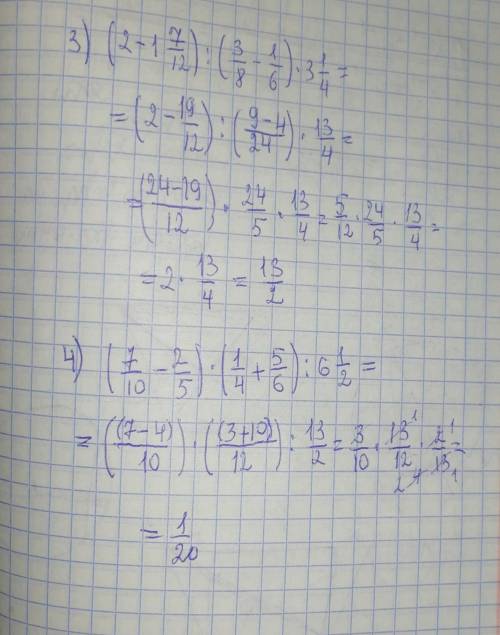 3) (2 - 1 7/12) : (3/8 - 1/6) · 3 1/4 =
= (2 - 19/12) : ((9-4)/24) · 13/4 =
= ((24-19)/12) · 24/5 · 13/4 = 5/12 · 24/5 · 13/4 =
= 2 · 13/4 = 13/2
4) (7/10 - 2/5) · (1/4 + 5/6) : 6 1/2 =
= ((7-4)/10) · ((3+10)/12) : 13/2 = 3/10 · 13/12 · 2/13 =
= 1/20